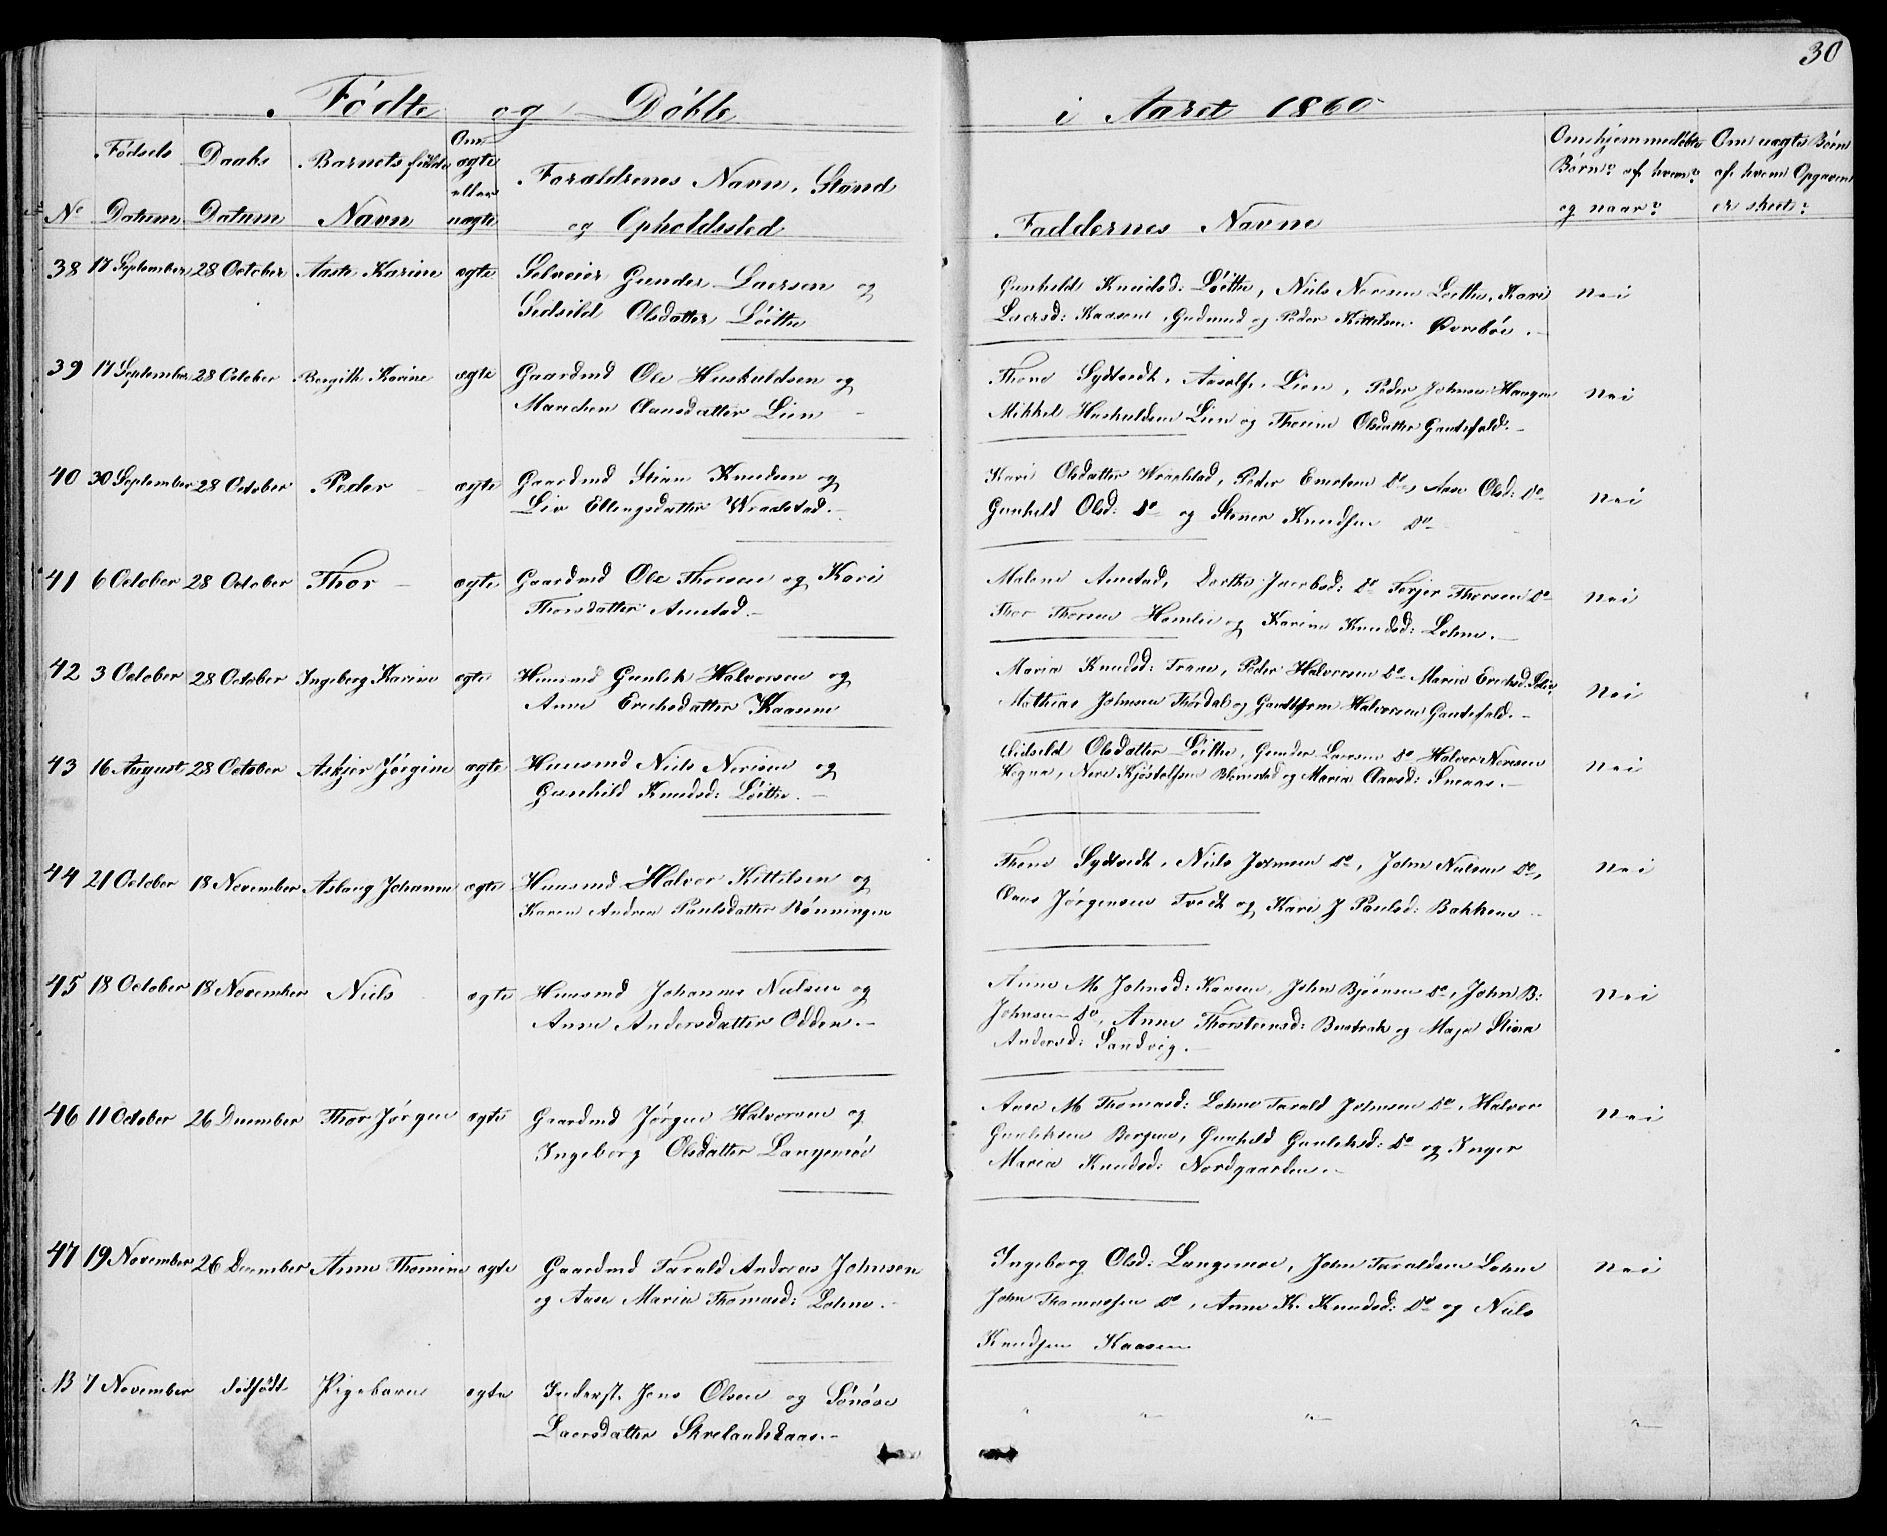 30
Fødte og Døbte i Aaret 1860
No Fødsels Datum Daabs Datum Barnets fulde Navn Om ægte eller uægte Forældrenes Navn, Stand og Opholdssted Faddernes Navne Om hjemmedøbte Børn? af hvem? og naar? Om uægte Børn af hvem Opgaven er skeet?
38 17 September 28 October Aaste Karine ægte Selveier Gunder Laersen og
Sidsild Olsdatter Løithe
Gunhild Knudsd: Løithe, Niels Neresen Løithe, Kari
Laersd: Kaasene, Gudmund og Peder Kittilsen Øvrebøe.
Nei
39 17 September 28 October Bergithe Karine ægte Gaardmd Ole Huskuldsen og
Marichen Aansdatter Lien
Thone Sydtvedt, Lien, Peder Johnsen Haugen
Mikkel Huskuldsen Lien og Thorine Olsdatter Gautefald.
Nei
40 30 September 28 October Peder ægte Gaardmd Stian Knudsen og
Liv Ellingsdatter Wraalstad.
Kari Olsdatter Wraalstad, Peder Evensen Do, Aase Olsd: Do
Gunhild Olsd: Do og Stener Knudsen Do
Nei
41 6 October 28 October Thor ægte Gaardmd Ole Thorsen og Kari
Thorsdatter
Malene Dorthe Jacobsd: Do Terjer Thorsen Do
Thor Thorsen Homlie og Karine Knudsd: Lohne.
Nei
42 3 October 28 October Ingeborg Karine ægte Huusmd Gunlek Halvorsen og
Anne Erichsdatter Kaasene
Maria Knudsd: Traae, Peder Halvorsen Do Maria Erichsd:
Mathias Johnsen Thørdal og Halvorsen Gautefald.
Nei
43 16 August 28 October Askjer Jørgine ægte Huusmd Niels Nerisen og
Gunhild Knudsd: Løithe.
Sidsild Olsdatter Løithe, Gunder Laersen Do Halvor Neresen
Hegna, Nere Kjøstolfsen og Maria Aarsd: Smaas.
Nei
44 21 October 18 November Aslaug Johanne ægte Huusmd Halvor Kittilsen og
Karen Andrea Paulsdatter Rønningen
Thone Sydtvedt, Niels Johnsen Do, John Nielsen Do,
Aans Jørgensen Tvedt og Kari J Paulsd: Bakken
Nei
45 18 October 18 November Niels ægte Huusmd Johannes Nielsen og
Anne Andersdatter Odden.
Anne M Johnsd: Kaasen, John Bjørnsen Do, John B:
Johnsen Do, Anne Thorsteensd: Bustrak og Maja Stina
Andersd: Sandvig.
Nei
46 11 October 26 December Thor Jørgen ægte Gaardmd Jørgen Halvorsen og
Ingeborg Olsdatter Langemoe
Aase M Thomasd: Lohne Tarald Johnsen Do, Halvor
Gunleksen Bergene, Gunhild Gunleksd: Do og Inger
Maria Knudsd: Nordgaarden.
Nei
47 19 November 26 December Anne Thomine ægte Gaardmd Tarald Andreas Johnsen
og Aase Maria Thomasd: Lohne.
Ingeborg Olsd: Langemoe, John Taraldsen Lohne
John Thomassen Do, Anne K. Knudsd: Do og Niels
Knudsen Kaasen
Nei
B 7 November dødfødt Pigebarn ægte Inderst. Jens Olsen og Sønøve
Laersdatter Skrelandsdaas.
" " " "